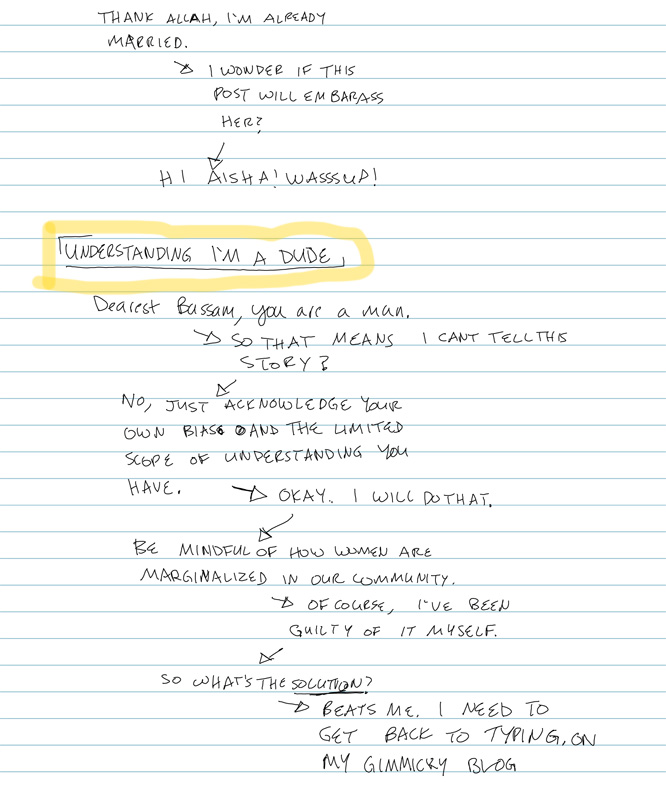 THANK ALLAH, I'M ALREADY
MARRIED.
I WONDER IF THIS
POST WILL EMBARASS
HER?
HI AISHA! WASSSUP!
UNDERSTANDING I'M A DUDE
Dearest Bassam, you are a man.
SO THAT MEANS I CANT TELL THIS
STORY?
NO, JUST ACKNOWLEDGE YOUR
OWN BIAS AND THE LIMITED
SCOPE OF UNDERSTANDING YOU
HAVE.
OKAY. I WILL DO THAT.
BE MINDFUL OF HOW WOMEN ARE
MARGINALIZED IN OUR COMMUNITY.
OF COURSE, I'VE BEEN
GUILTY OF IT MYSELF.
SO WHAT'S THE SOLUTION?
BEATS ME. I NEED TO
GET BACK TO TYPING, ON
MY GIMMICKY BLOG